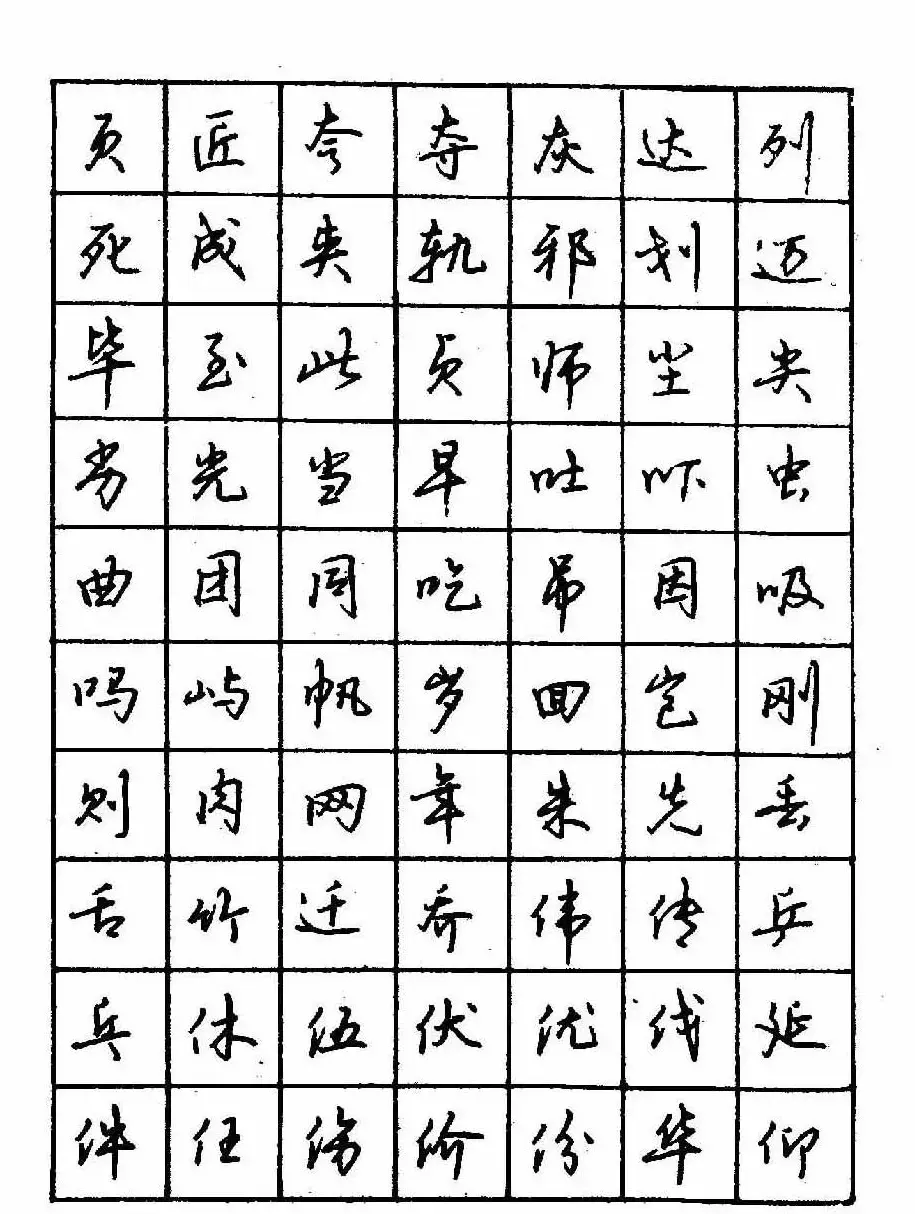 页匠夸夺灰达列
死成夹轨邪划迈
毕至此贞师尘尖
劣光当早吐吓虫
曲团同吃吊因吸
吗屿帆岁回岂刚
则肉网年朱先丢
舌竹迁乔伟传乒
兵休伍伏优伐延
件任伤价份华仰